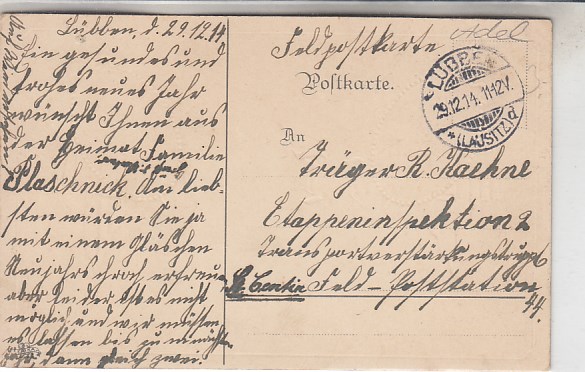 Lübben, d. 29.12.14
Ein gesundes und
frohes neues Jahr
wünscht Ihnen aus
der Heimat Familie
Plaschnick. Am lieb-
sten würden Sie ja
mit einem Gläschen
Neujahrshoch erfreuen
aber leider ist es nicht
möglich und wir müssen
es lassen bis zu
dann gleich zwei.
Feldpostkarte
Adel
Postkarte.
LÜBBEN
29.12.14. 11-12V.
*(LAUSITZ)d
An
Träger R. Kaehne
Etappeninspektion 2
Transportverstärkungstruppe
Feld-Poststation
44.